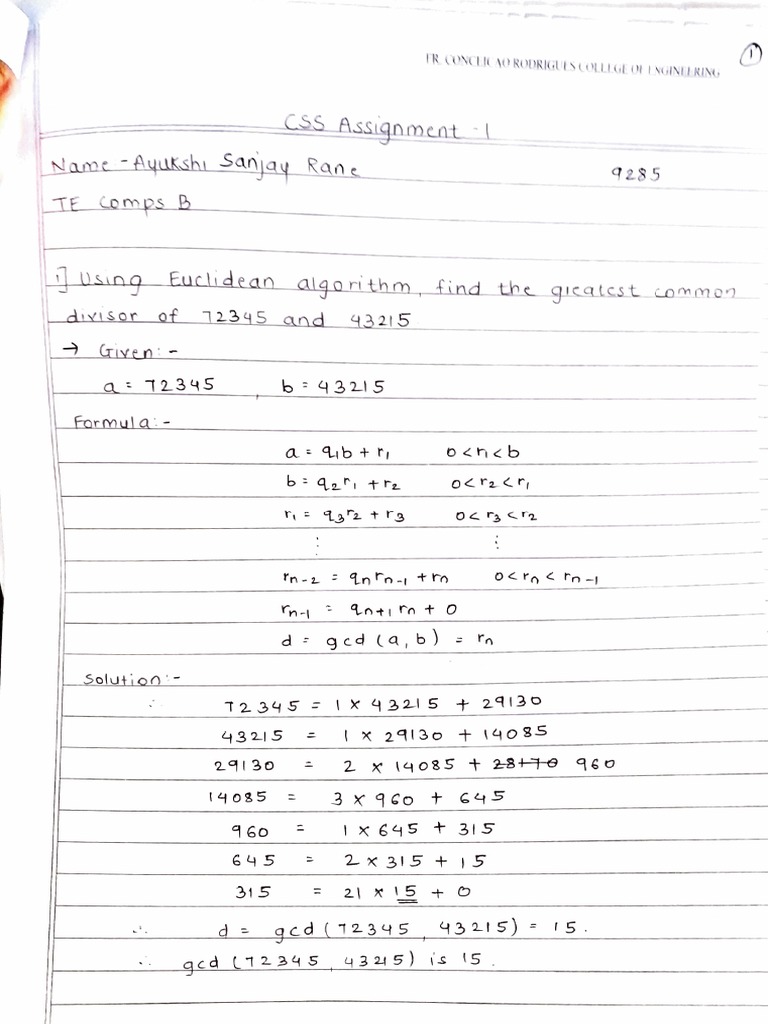 FR. CONCEICAO RODRIGUES COLLEGE OF ENGINEERING
1
CSS Assignment - 1
Name - Ayukshi Sanjay Rane 9285
TE Comps B
1] Using Euclidean algorithm, find the greatest common
divisor of 72345 and 43215
→ Given:-
a = 72345 , b = 43215
Formula:-
a = q₁b + r₁ 0 < r₁ < b
b = q₂r₁ + r₂ 0 < r₂ < r₁
r₁ = q₃r₂ + r₃ 0 < r₃ < r₂
⋮ ⋮
rₙ₋₂ = qₙrₙ₋₁ + rₙ 0 < rₙ < rₙ₋₁
rₙ₋₁ = qₙ₊₁rₙ + 0
d = gcd (a, b) = rₙ
Solution:-
∴ 72345 = 1 × 43215 + 29130
43215 = 1 × 29130 + 14085
29130 = 2 × 14085 + 28170 960
14085 = 3 × 960 + 645
960 = 1 × 645 + 315
645 = 2 × 315 + 15
315 = 21 × 15 + 0
∴ d = gcd (72345, 43215) = 15.
∴ gcd (72345, 43215) is 15.